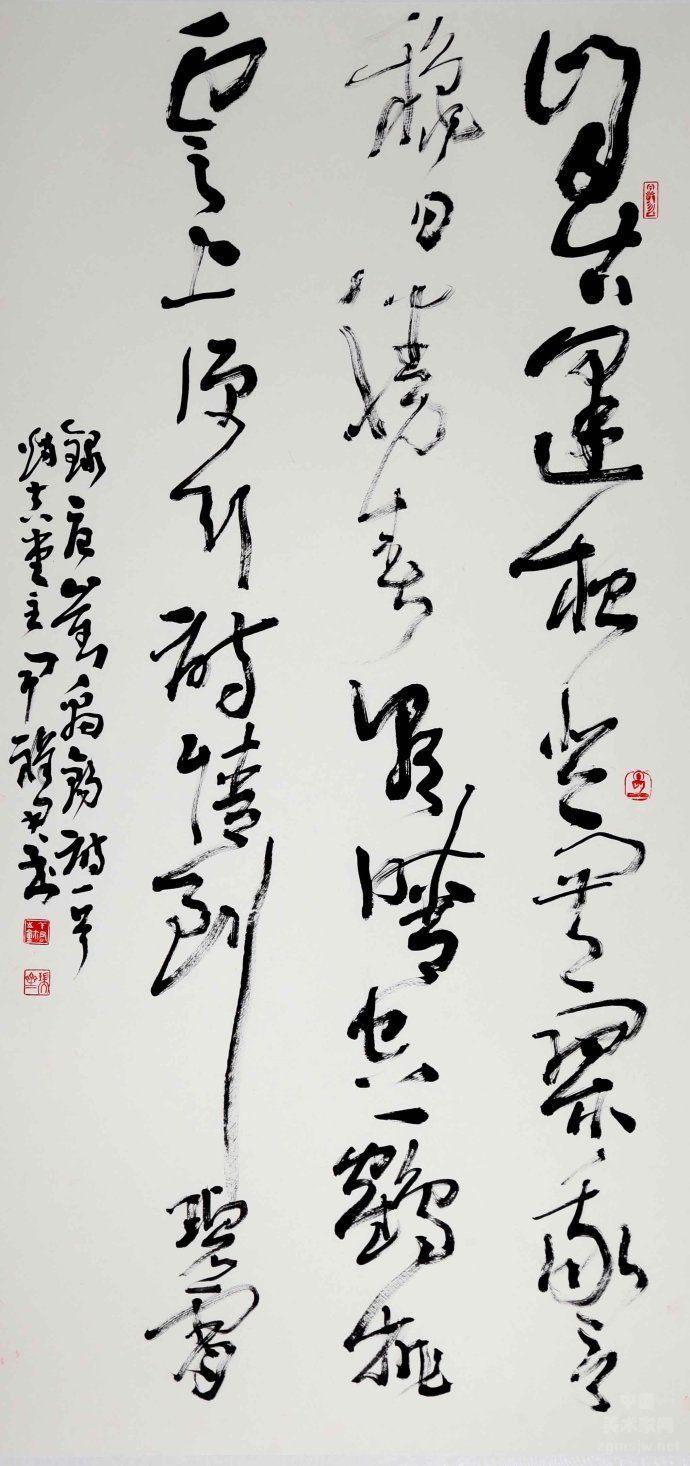 自古逢秋悲寂寥我言
秋日勝春朝晴空一鶴排
雲上便引詩情到碧霄
錄唐劉禹錫詩一首
堂主尹
中国美术家网
zgmsjw.net